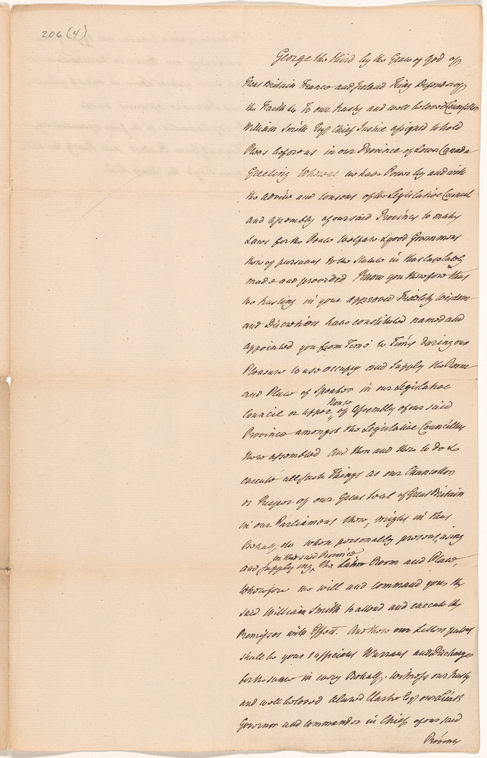 206 (4)
George the third by the Grace of God of
Great Britain France and Ireland King Defender of
the Faith &c To our trusty and well beloved Councillor
William Smith Esqr Chief Justice assigned to hold
Pleas before us in our Province of Lower Canada
Greeting Whereas we have Power by and with
the advice and consent of the Legislative Council
and Assembly of our said Province to make
Laws for the Peace Welfare & good Government
thereof pursuant to the Statute in that Case lately
made and provided Know you therefore that
we trusting in your approved Fidelity Wisdom
and Discretion have constituted named and
appointed you from Time to Time during our
Pleasure to use occupy and supply the Room
and Place of Speaker in our Legislative
Council or upper House of Assembly of our said
Province amongst the Legislative Councillors
there assembled and then and there to do &
execute all such Things as our Chancellor
or Keeper of our Great Seal of Great Britain
in our Parliament there, might in that
Behalf, do when personally present, using
and supplying in that said Province the Room and Place,
Wherefore we will and command you, the
said William Smith to attend and execute the
Premises with Effect. And these our Letters patent
shall be your sufficient Warrant and Discharge
for the same in every Behalf. Witness our trusty
and well beloved Alured Clarke Esqr our Lieut
Governor and commander in Chief of our said
Province